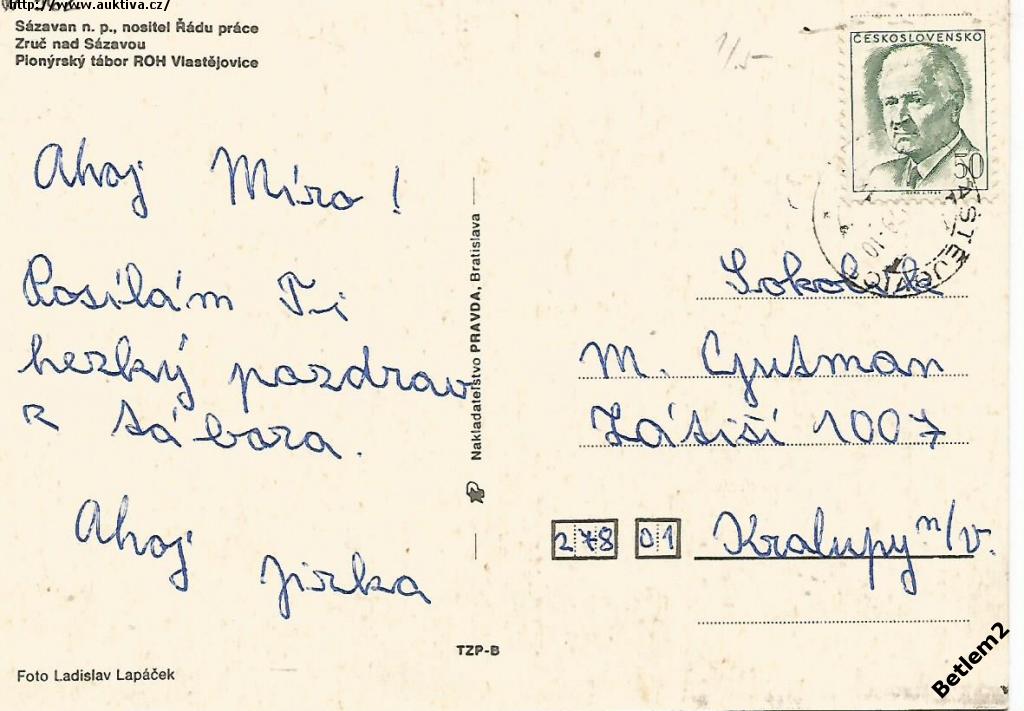 http://www.auktiva.cz/
Sázavan n. p., nositel Řádu práce
Zruč nad Sázavou
Pionýrský tábor ROH Vlastějovice
1/5-
ČESKOSLOVENSKO
50
Ahoj Míro!
Posílám Ti
hezký pozdrav
z tábora.
Ahoj
Jirka
Nakladatelství PRAVDA, Bratislava
M. Gutman
Zátiší 1007
278 01 Kralupy n/v.
TZP-B
Foto Ladislav Lapáček
Betlem2